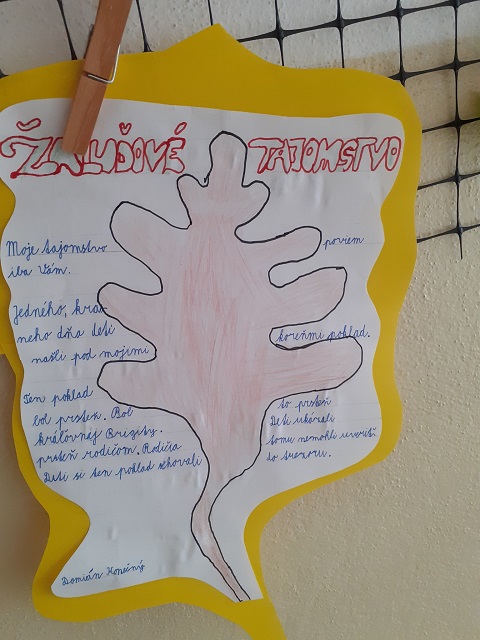 ŽALUĎOVÉ TAJOMSTVO
Moje tajomstvo poviem
iba Vám.
Jedného, krás
neho dňa deti
našli pod mojimi koreňmi poklad.
Ten poklad
bol prsteň. Bol to prsteň
kráľovnej Brigity. Deti ukázali
prsteň rodičom. Rodičia tomu nemohli uveriť.
Deti si ten poklad schovali do trezoru.
Damián Konečný